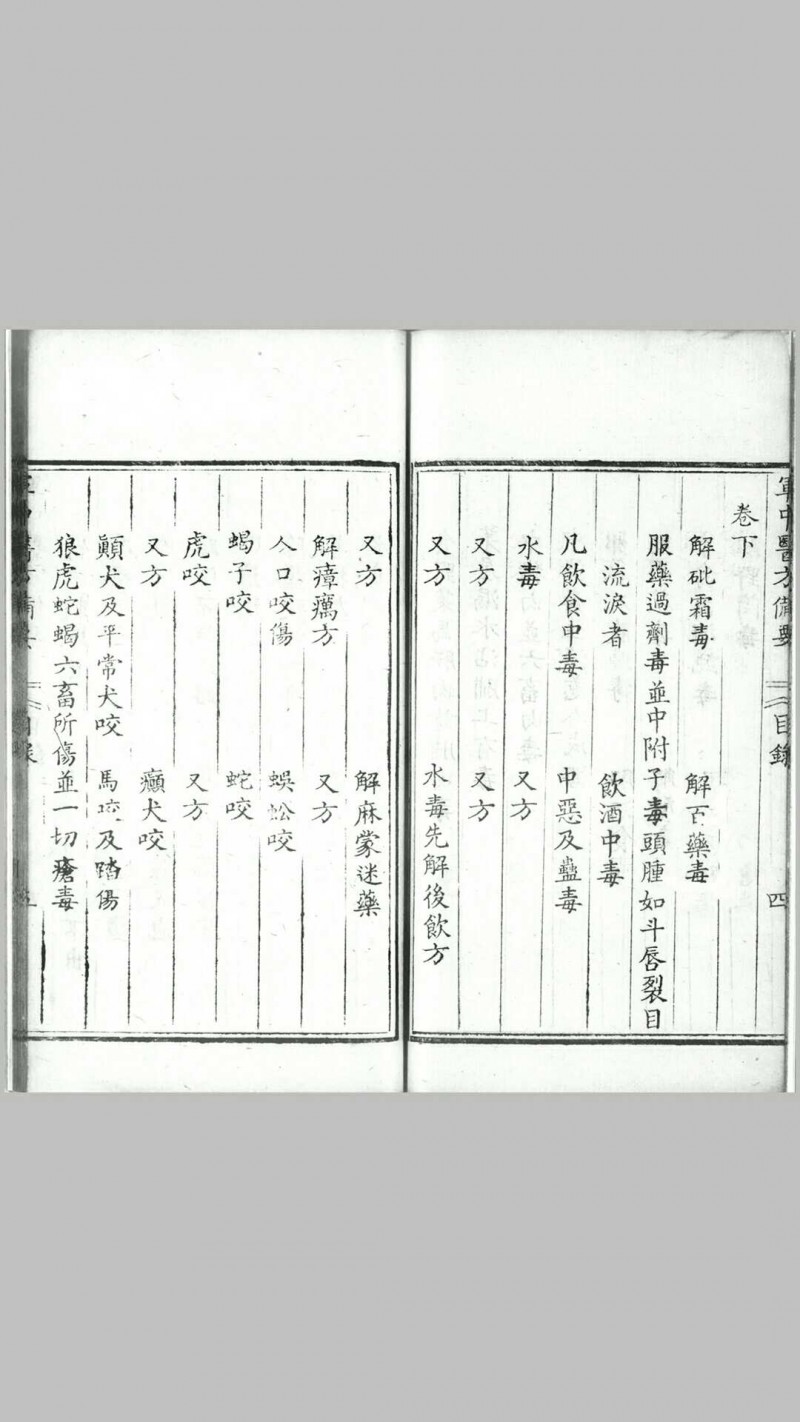 軍中醫方備要 目錄 四
卷下
解砒霜毒 解百藥毒
服藥過劑毒並中附子毒頭腫如斗唇裂目
流淚者 飲酒中毒
凡飲食中毒 中惡及蠱毒
水毒 又方
又方 又方
又方 水毒先解後飲方
又方 解麻蒙迷藥
解瘴癘方 又方
人口咬傷 蜈蚣咬
蝎子咬 蛇咬
虎咬 又方
又方 癲犬咬
顛犬及平常犬咬 馬咬及踏傷
狼虎蛇蝎六畜所傷並一切瘡毒